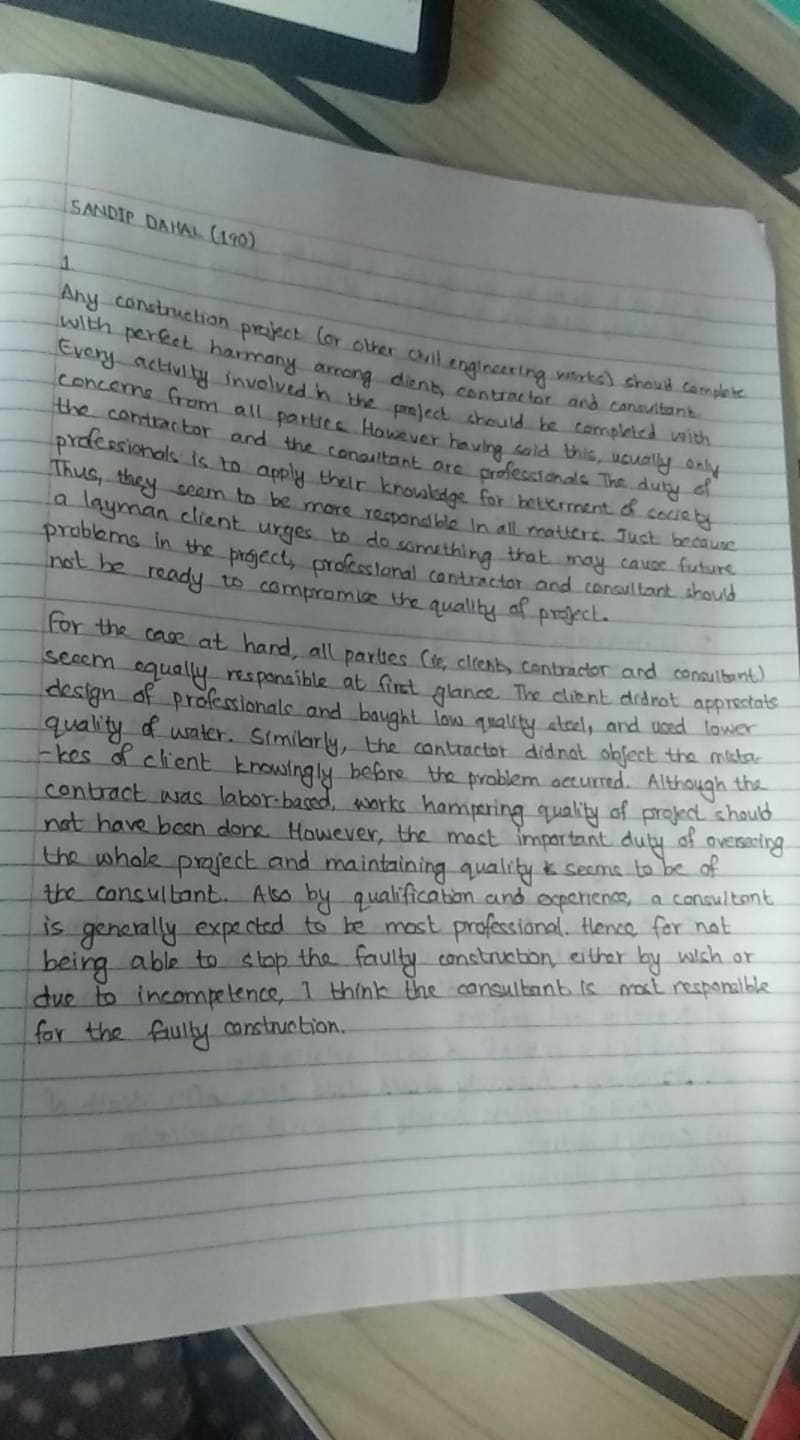 SANDIP DAHAL (190)
1.
Any construction project (or other civil engineering works) should complete
with perfect harmony among client, contractor and consultant.
Every activity involved in the project should be completed with
concerns from all parties. However having said this, usually only
the contractor and the consultant are professionals. The duty of
professionals is to apply their knowledge for betterment of society.
Thus, they seem to be more responsible in all matters. Just because
a layman client urges to do something that may cause future
problems in the project, professional contractor and consultant should
not be ready to compromise the quality of project.
For the case at hand, all parties (ie, client, contractor and consultant)
seeem equally responsible at first glance. The client didnot appreciate
design of professionals and bought low quality steel, and used lower
quality of water. Similarly, the contractor didnot object the mista-
-kes of client knowingly before the problem occurred. Although the
contract was labor-based, works hampering quality of project should
not have been done. However, the most important duty of overseeing
the whole project and maintaining quality seems to be of
the consultant. Also by qualification and experience, a consultant
is generally expected to be most professional. Hence, for not
being able to stop the faulty construction, either by wish or
due to incompetence, I think the consultant is most responsible
for the faulty construction.